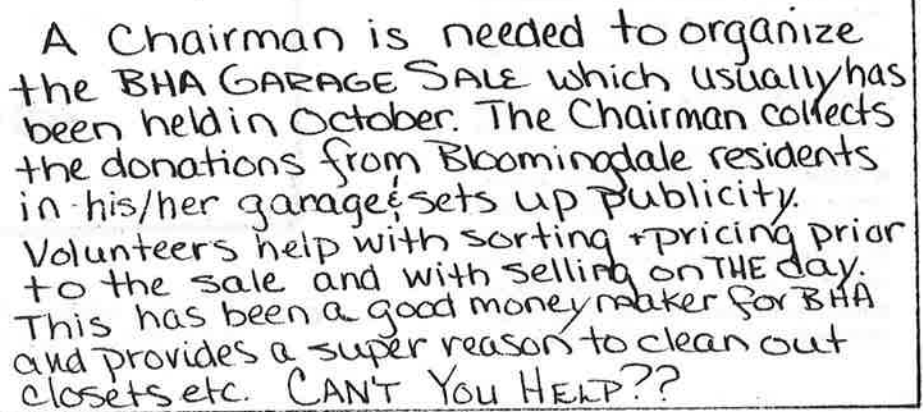 A Chairman is needed to organize
the BHA GARAGE SALE which usually has
been held in October. The Chairman collects
the donations from Bloomingdale residents
in his/her garage & sets up publicity.
Volunteers help with sorting + pricing prior
to the sale and with selling on THE day.
This has been a good money maker for BHA
and provides a super reason to clean out
closets etc. CAN'T YOU HELP??